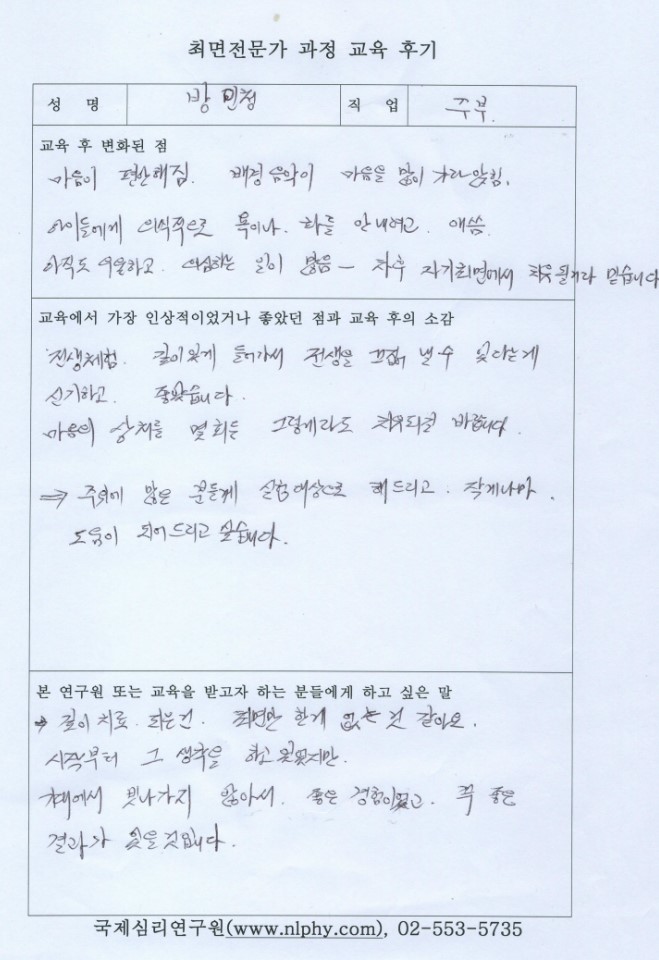 최면전문가 과정 교육 후기
성 명 방 민정 직 업 주부.
교육 후 변화된 점
마음이 편안해짐. 배경음악이 마음을 많이 가라앉힘.
아이들에게 의식적으로 욕이나. 화를 안내려고. 애씀.
아직도 우울하고. 의심하는 일이 많음 - 차후 자기최면에서 치유될거라 믿습니다
교육에서 가장 인상적이었거나 좋았던 점과 교육 후의 소감
전생체험. 깊이있게 들어가서 전생을 끄집어 낼 수 있다는게
신기하고. 좋았습니다.
마음의 상처를 몇 회든 그렇게라도 치유되길 바랍니다.
⇒ 주위에 많은 분들께 실험대상으로 해드리고. 작게나마.
도움이 되어드리고 싶습니다.
본 연구원 또는 교육을 받고자 하는 분들에게 하고 싶은 말
→ 깊이 치료. 되는건. 최면만 한게 없는 것 같아요.
시작부터 그 생각을 하고 왔었지만.
빗나가지 않아서. 좋은 경험이었고. 꼭 좋은
결과가 있을것입니다.
국제심리연구원(www.nlphy.com), 02-553-5735